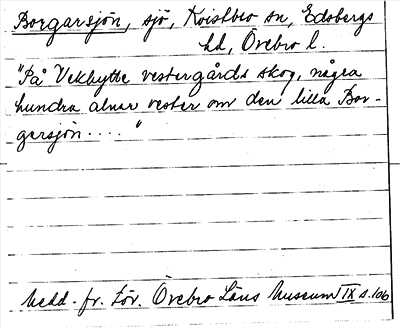 Borgarsjön, sjö, Kvistbro sn, Edsbergs
hd, Örebro l.
"På Vekhytte vestergårds skog, några
hundra alnar vester om den lilla Bor-
garsjön .... "
Medd. fr. För. Örebro Läns Museum IX s. 106